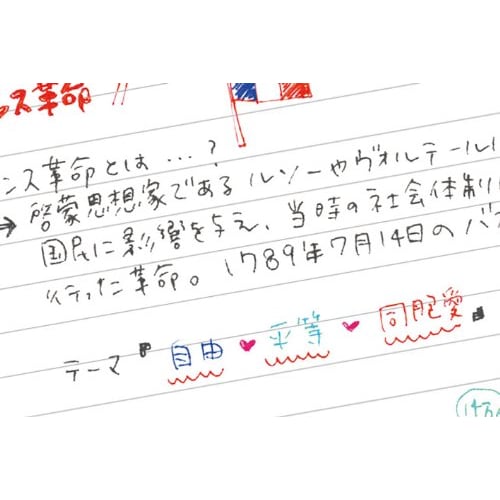 ンス革命!!
ンス革命とは…?
→ 啓蒙思想家であるルソーやヴォルテール
国民に影響を与え、当時の社会体制
行った革命。1789年7月14日のバ
テーマ『自由♥平等♥同胞愛』